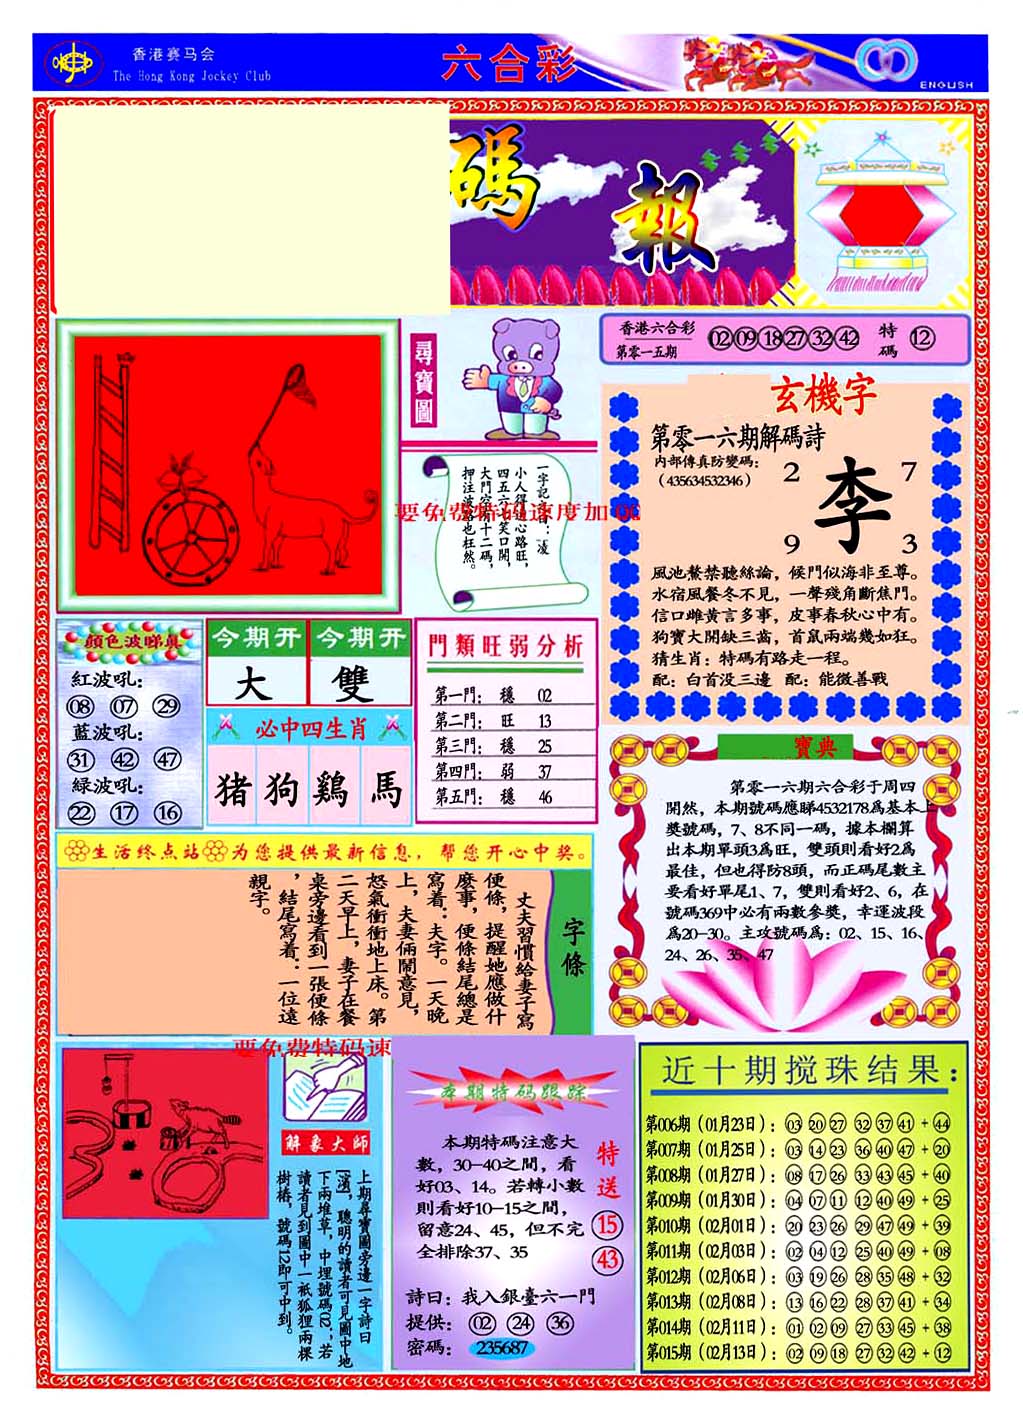 香港赛马会
The Hong Kong Jockey Club
六合彩
ENGLISH
碼
報
尋寶圖
香港六合彩
第零一五期
02 09 18 27 32 42
特碼
12
玄機字
第零一六期解碼詩
内部傳真防變碼：
（435634532346）
2
7
李
9
3
風池鰲禁聽絲諭，候門似海非至尊。
水宿風餐冬不見，一聲殘角斷焦門。
信口雌黄言多事，皮事春秋心中有。
狗寶大開缺三齒，首鼠兩端幾如狂。
猜生肖：特碼有路走一程。
配：白首没三邊 配：能微善戰
小人得 心路旺，
四五六七笑口開，
押注波路也枉然。
要免费特码速度加
顔色波睇真
紅波吼：
08 07 29
藍波吼：
31 42 47
緑波吼：
22 17 16
今期开
大
今期开
雙
必中四生肖
猪
狗
鷄
馬
門類旺弱分析
第一門： 穩 02
第二門： 旺 13
第三門： 穩 25
第四門： 弱 37
第五門： 穩 46
寶典
第零一六期六合彩于周四
開然，本期號碼應睇4532178爲基本上
奬號碼，7、8不同一碼，據本欄算
出本期單頭3爲旺，雙頭則看好2爲
最佳，但也得防8頭，而正碼尾數主
要看好單尾1、7，雙則看好2、6，在
號碼369中必有兩數參奬，幸運波段
爲20-30。主攻號碼爲：02、15、16、
24、26、35、47
生活终点站 为您提供最新信息，帮您开心中奖。
字條
丈夫習慣給妻子寫
便條，提醒她應做什
麽事，便條結尾總是
寫着：夫字。一天晚
上，夫妻倆鬧意見，
怒氣衝衝地上床。第
二天早上，妻子在餐
桌旁邊看到一張便條
，結尾寫着：一位遠
親字。
要免费特码速
解象大師
上期尋寶圖旁邊一字詩曰
【濱】，聰明的讀者可見圖中地
下兩堆草，中埋號碼02；若
讀者見到圖中一衹狐狸兩棵
樹樁，號碼12即可中到。
本期特码跟踪
本期特碼注意大
數，30-40之間，看
好03、14。若轉小數
則看好10-15之間，
留意24、45，但不完
全排除37、35
特送
15
43
詩曰：我入銀臺六一門
提供： 02 24 36
密碼： 235687
近十期搅珠结果：
第006期（01月23日）：03 20 27 32 37 41 + 44
第007期（01月25日）：03 14 23 36 40 47 + 20
第008期（01月27日）：08 17 26 33 43 45 + 40
第009期（01月30日）：04 07 11 12 40 49 + 25
第010期（02月01日）：20 23 26 29 47 49 + 39
第011期（02月03日）：02 04 12 25 40 49 + 08
第012期（02月06日）：03 19 26 28 35 48 + 32
第013期（02月08日）：13 16 22 28 37 41 + 34
第014期（02月11日）：01 02 09 27 33 45 + 38
第015期（02月13日）：02 09 18 27 32 42 + 12